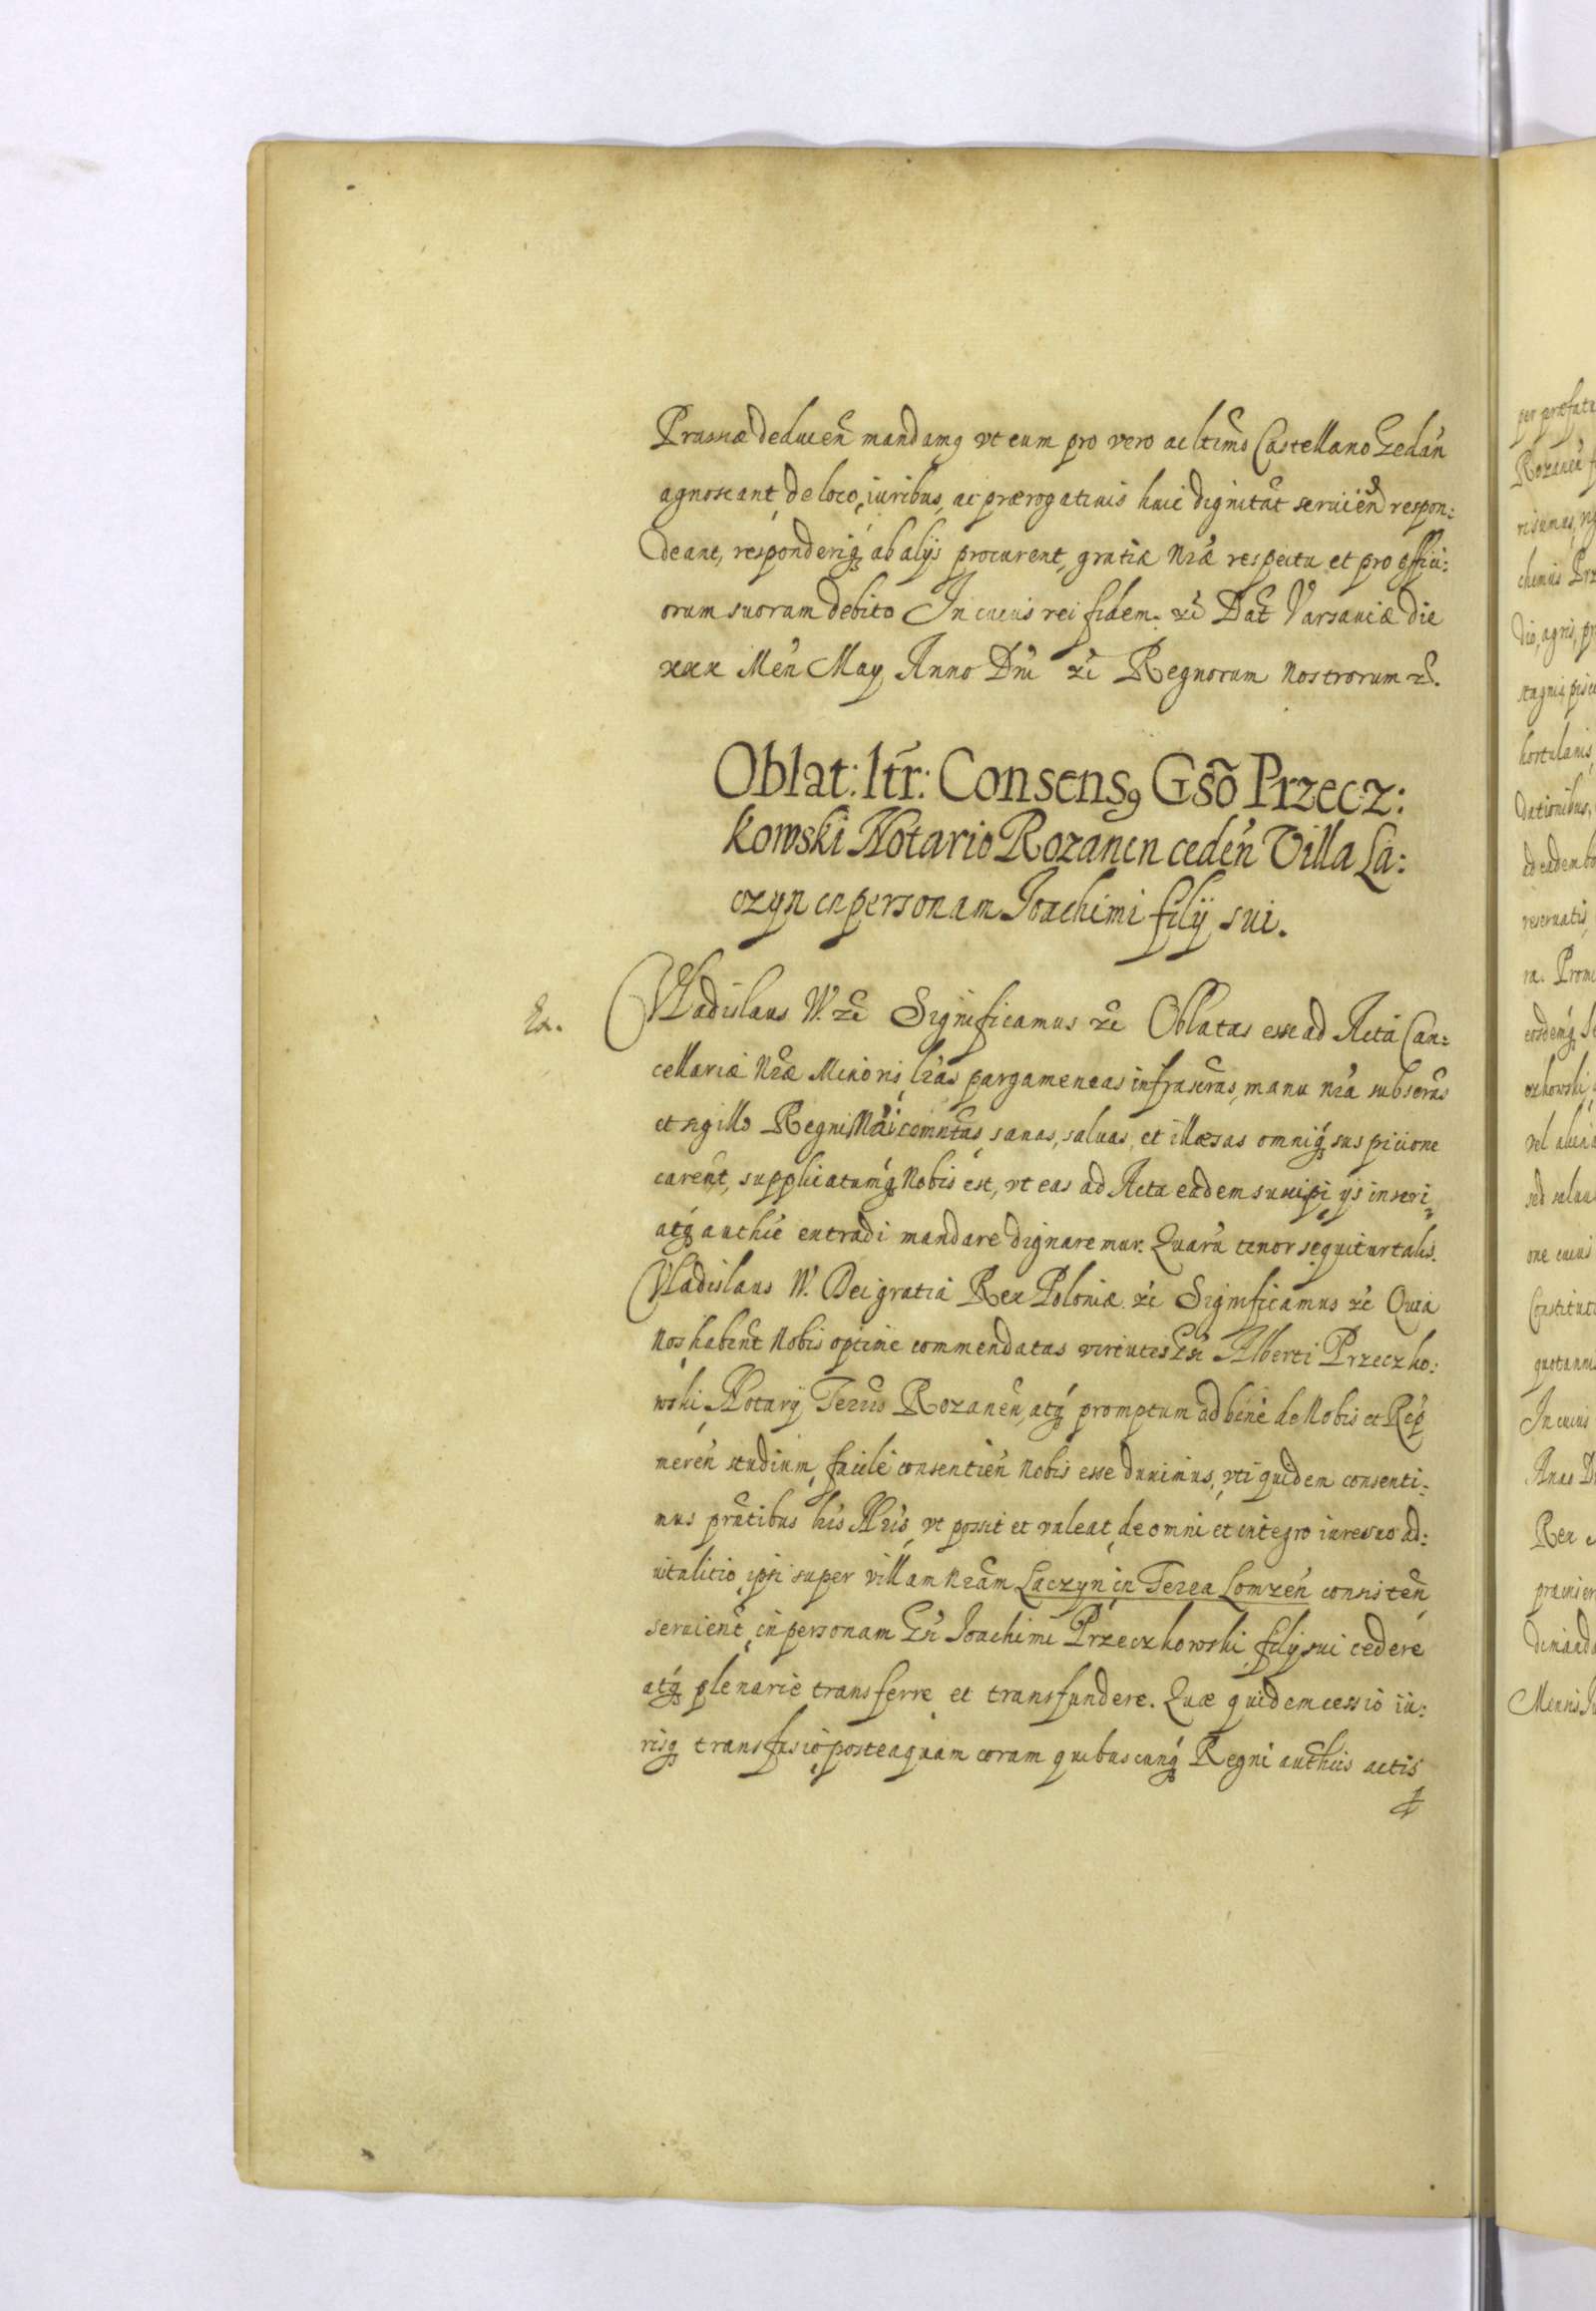 Prussiæ deducen mandamq vt eum pro vero ac ltimo Castellano Gedan
agnoscant, de loco, iuribus, ac prærogatiuis huic dignitat seruien respon:
deant, responderiq ab alijs procurent, gratiæ Nræ respectu et pro offici:
orum suorum debito In cuius rei fidem. rc Dat Varsauiæ die
xxx Men May Anno Dni rc Regnorum Nostrorum rc.
Oblat: ltr: Consensq Gso Przecz:
kowski Notario Rozanen ceden Villa La:
czyn in personam Joachimi filij sui.
Ex. Vladislaus IV. rc Significamus rc Oblatas esse ad Acta Can:
cellariæ Nræ Minoris lras pargameneas infrascras, manu nra subscras
et sigillo Regni Mri comntas, sanas, saluas, et illæsas omniq suspicione
carent, supplicatumq Nobis est, vt eas ad Acta eadem suscipi ijs inseri
atq authce extradi mandare dignaremur. Quaru tenor sequitur talis.
Vladislaus IV. Dei gratia Rex Poloniæ rc Significamus rc Quia
Nos habent Nobis optime commendatas virtutes Gsi Alberti Przeczko:
wski Notarij Terris Rozanen, atq promptum ad bene de Nobis et Rep
meren studium, facile consentien Nobis esse duximus, vti quidem consenti:
mus prntibus his Nris, vt possit et valeat, de omni et integro iure suo ad:
uitalitio, ipsi super villam Nram Laczyn in Terra Lomzen consisten
seruient, in personam Gsi Joachimi Przeczkowski filij sui cedere
atq plenarie transferre et transfundere. Quæ quidem cessio iu:
risq transfusio, posteaquam coram quibuscunq Regni authcis actis